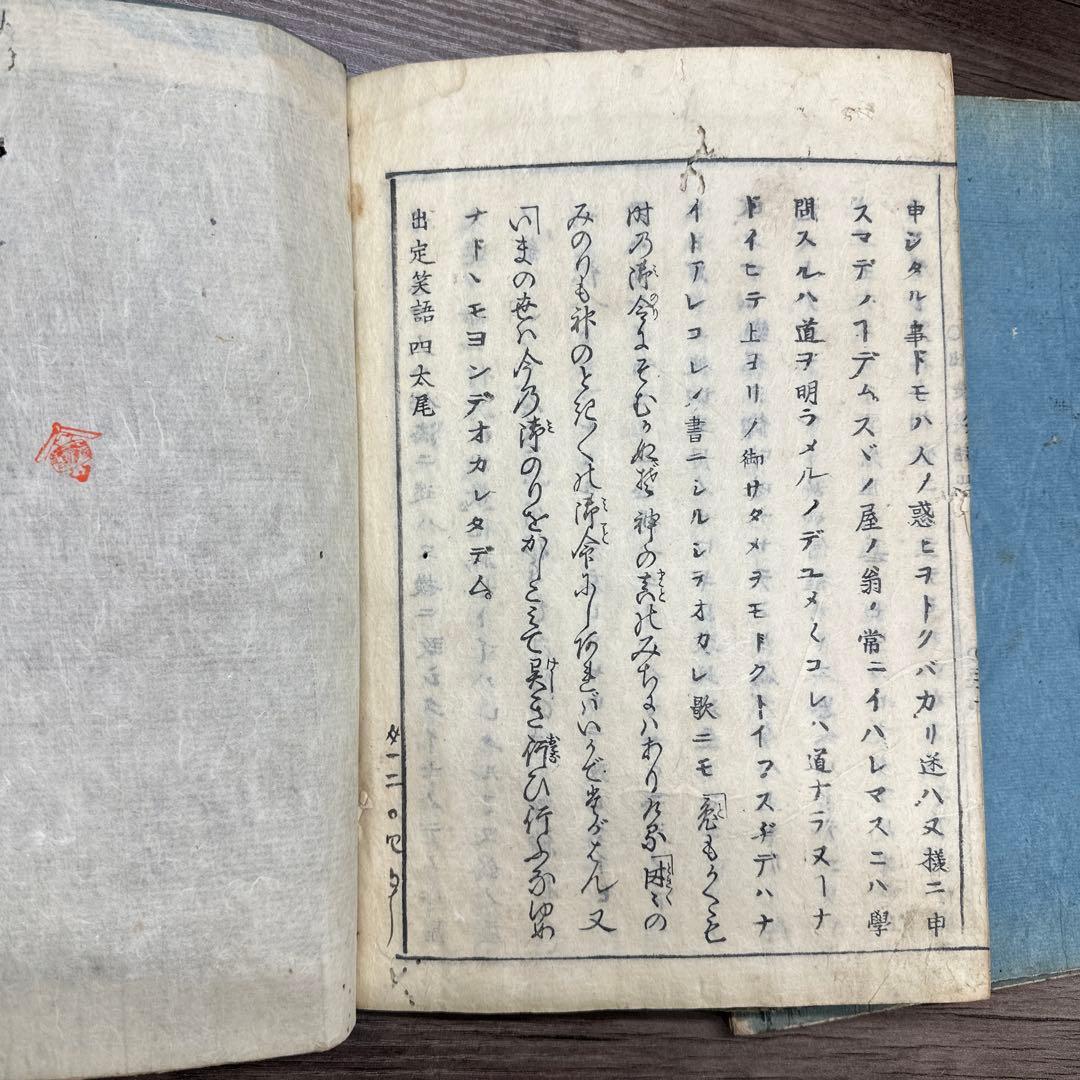 申シタル事ドモハ人ノ惑ヒヲトクバカリ迷ハヌ様ニ申
スマデノヿデムスヾノ屋ノ翁ノ常ニイハレマスニハ學
問スルハ道ヲ明ラメルノデユメ〱コレハ道ナラヌヿナ
ドイヒテ上ヨリノ御サタメヲモドクヿイフスヂデハナ
イトアレコレノ書ニシルシテオカレ歌ニモ「もかくも
時乃御令にそむかぬぞ神の真のみちにはありける「時々の
みのりも神のとき〱の御令にしあればいかでたがはん又
「いまの世は今乃御のりをかしこみて異き行ひ行ふなゆめ
ナドヽモヨンデオカレタデム
出定笑語四大尾